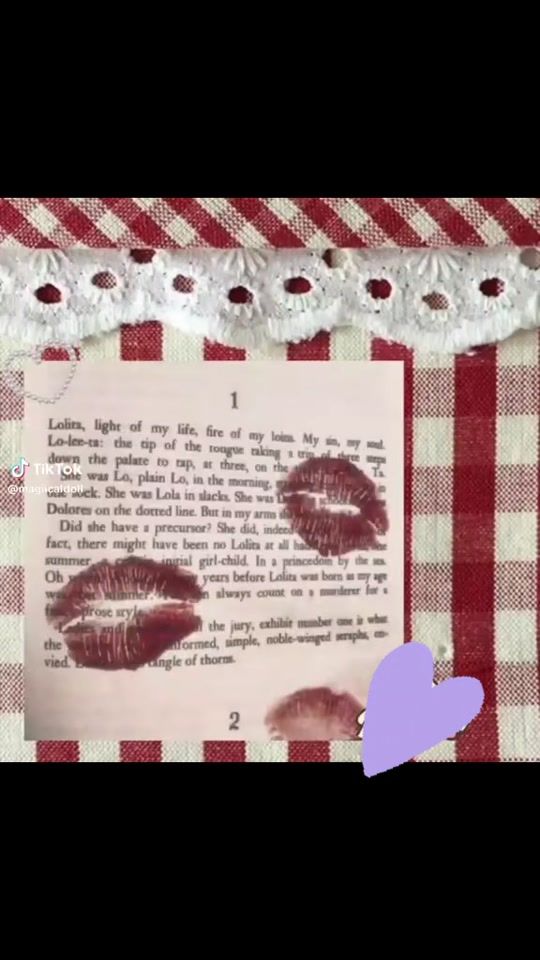 1
Lolita, light of my life, fire of my loins. My sin, my soul.
Lo-lee-ta: the tip of the tongue taking a trip of three steps
down the palate to tap, at three, on the Ta.
She was Lo, plain Lo, in the morning, in
sock. She was Lola in slacks. She was
Dolores on the dotted line. But in my arms
Did she have a precursor? She did, indeed
fact, there might have been no Lolita at all
summer, a initial girl-child. In a princedom by the sea.
Oh years before Lolita was born as my age
summer. always count on a murderer for a
prose style.
the jury, exhibit number one is what
the simple, noble-winged seraphs, en-
vied. tangle of thorns.
2
TikTok
@magiicaldoll